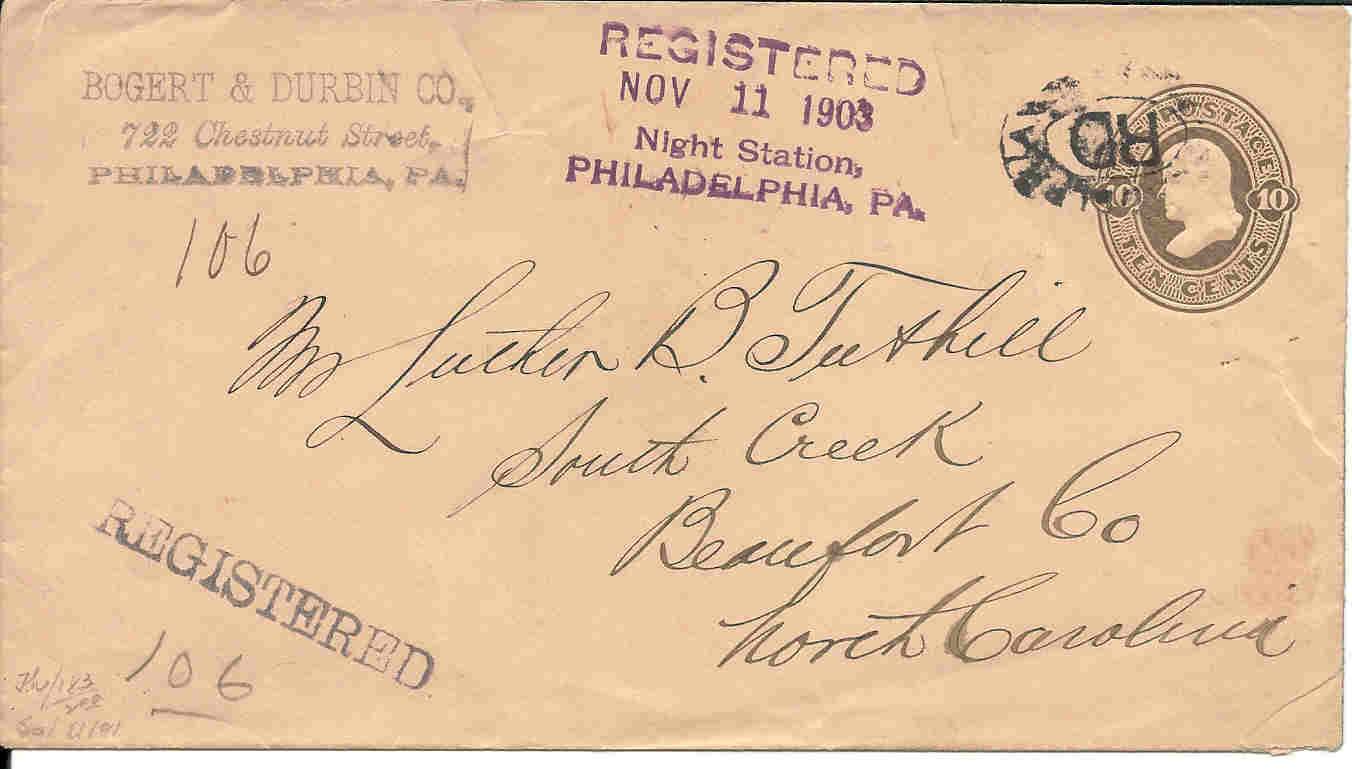 BOGERT & DURBIN CO.,
722 Chestnut Street,
PHILADELPHIA, PA.
REGISTERED
NOV 11 1903
Night Station,
PHILADELPHIA, PA.
RD
POSTAGE
10 10
TEN CENTS
106
Mr Luther B. Tuthill
South Creek
Beaufort Co
North Carolina
REGISTERED
106